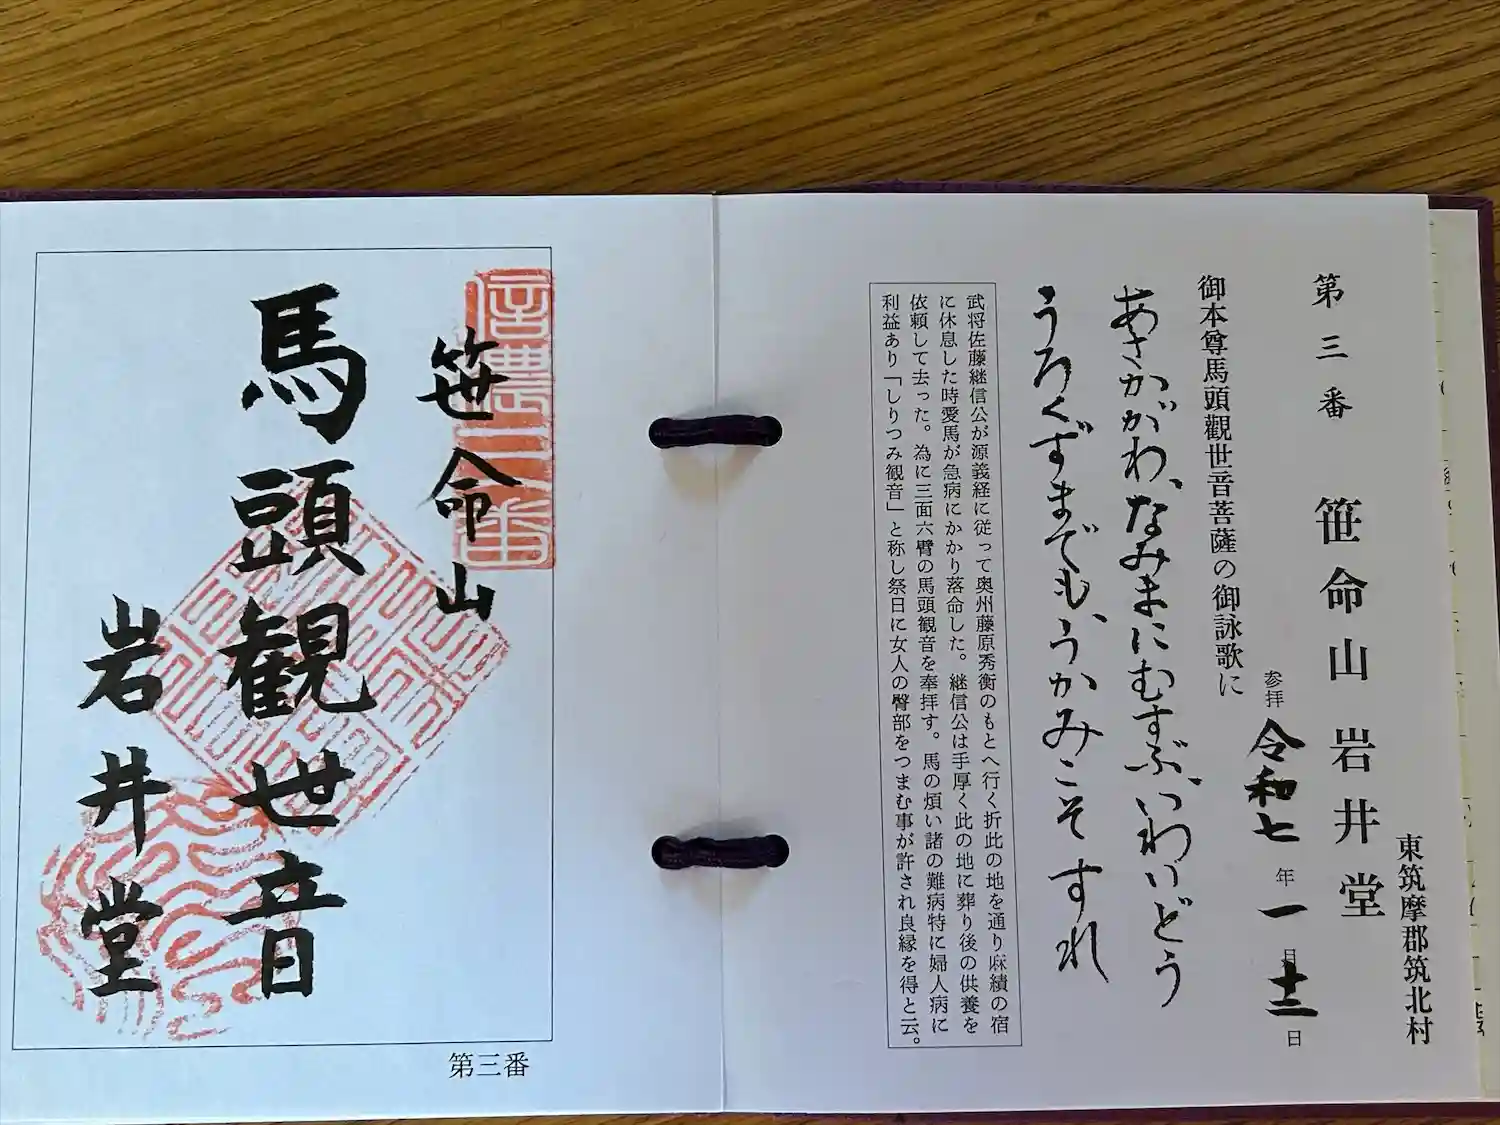 東筑摩郡筑北村
第三番 笹命山岩井堂
参拝 令和七年一月十二日
御本尊馬頭觀世音菩薩の御詠歌に
あさかがわ、なみまにむすぶ、いわいどう
うろくずまでも、うかみこそすれ
武将佐藤継信公が源義経に従って奥州藤原秀衡のもとへ行く折此の地を通り麻績の宿
に休息した時愛馬が急病にかかり落命した。継信公は手厚く此の地に葬り後の供養を
依頼して去った。為に三面六臂の馬頭観音を奉拝す。馬の煩い諸の難病特に婦人病に
利益あり「しりつみ観音」と称し祭日に女人の臀部をつまむ事が許され良縁を得と云。
信濃三番
笹命山
馬頭観世音
岩井堂
第三番